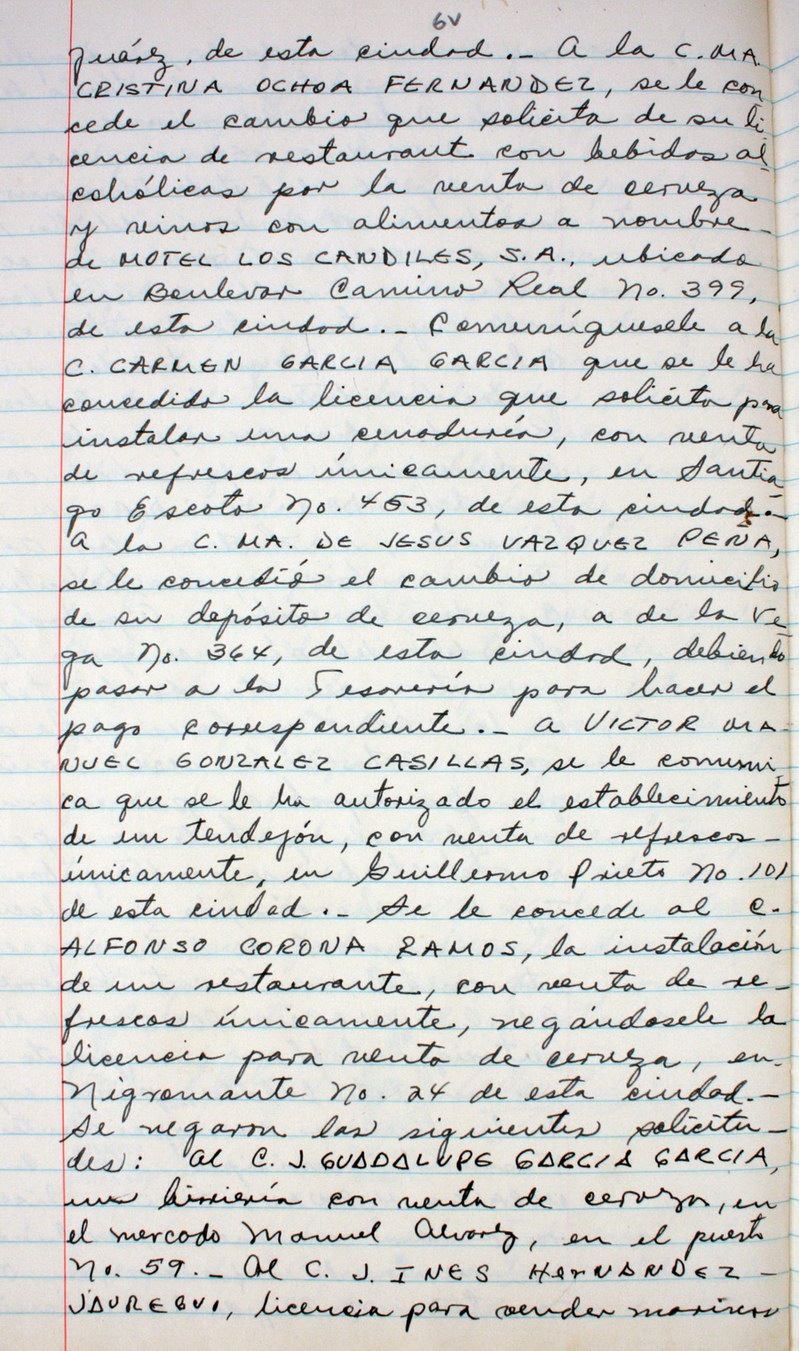 6v
Juárez, de esta ciudad.- A la C. MA.
CRISTINA OCHOA FERNANDEZ, se le con
cede el cambio que solicita de su li-
cencia de restaurant con bebidas al-
cohólicas por la venta de cerveza
y vinos con alimentos a nombre-
de MOTEL LOS CANDILES, S.A., ubicado
en Boulevar Camino Real No. 399,
de esta ciudad.- Comuníquesele a la
C. CARMEN GARCIA GARCIA que se le ha
concedido la licencia que solicita para
instalar una cenaduría, con venta
de refrescos únicamente, en Santia-
go Escoto No. 453, de esta ciudad.-
A la C. MA. DE JESUS VAZQUEZ PEÑA,
se le concedió el cambio de domicilio
de su depósito de cerveza, a de la Ve-
ga No. 364, de esta ciudad, debiendo
pasar a la Tesorería para hacer el
pago correspondiente.- A VICTOR MA-
NUEL GONZALEZ CASILLAS, se le comuni-
ca que se le ha autorizado el establecimiento
de un tendejón, con venta de refrescos-
únicamente, en Guillermo Prieto No. 101
de esta ciudad.- Se le concede al C.
ALFONSO CORONA RAMOS, la instalación
de un restaurante, con venta de re-
frescos únicamente, negándosele la
licencia para venta de cerveza, en-
Nigromante No. 24 de esta ciudad.-
Se negaron las siguientes solicitu-
des: Al C. J. GUADALUPE GARCIA GARCIA,
una birriería con venta de cerveza, en
el mercado Manuel Alvarez, en el puesto
No. 59.- Al C. J. INES HERNANDEZ-
JAUREGUI, licencia para vender mariscos